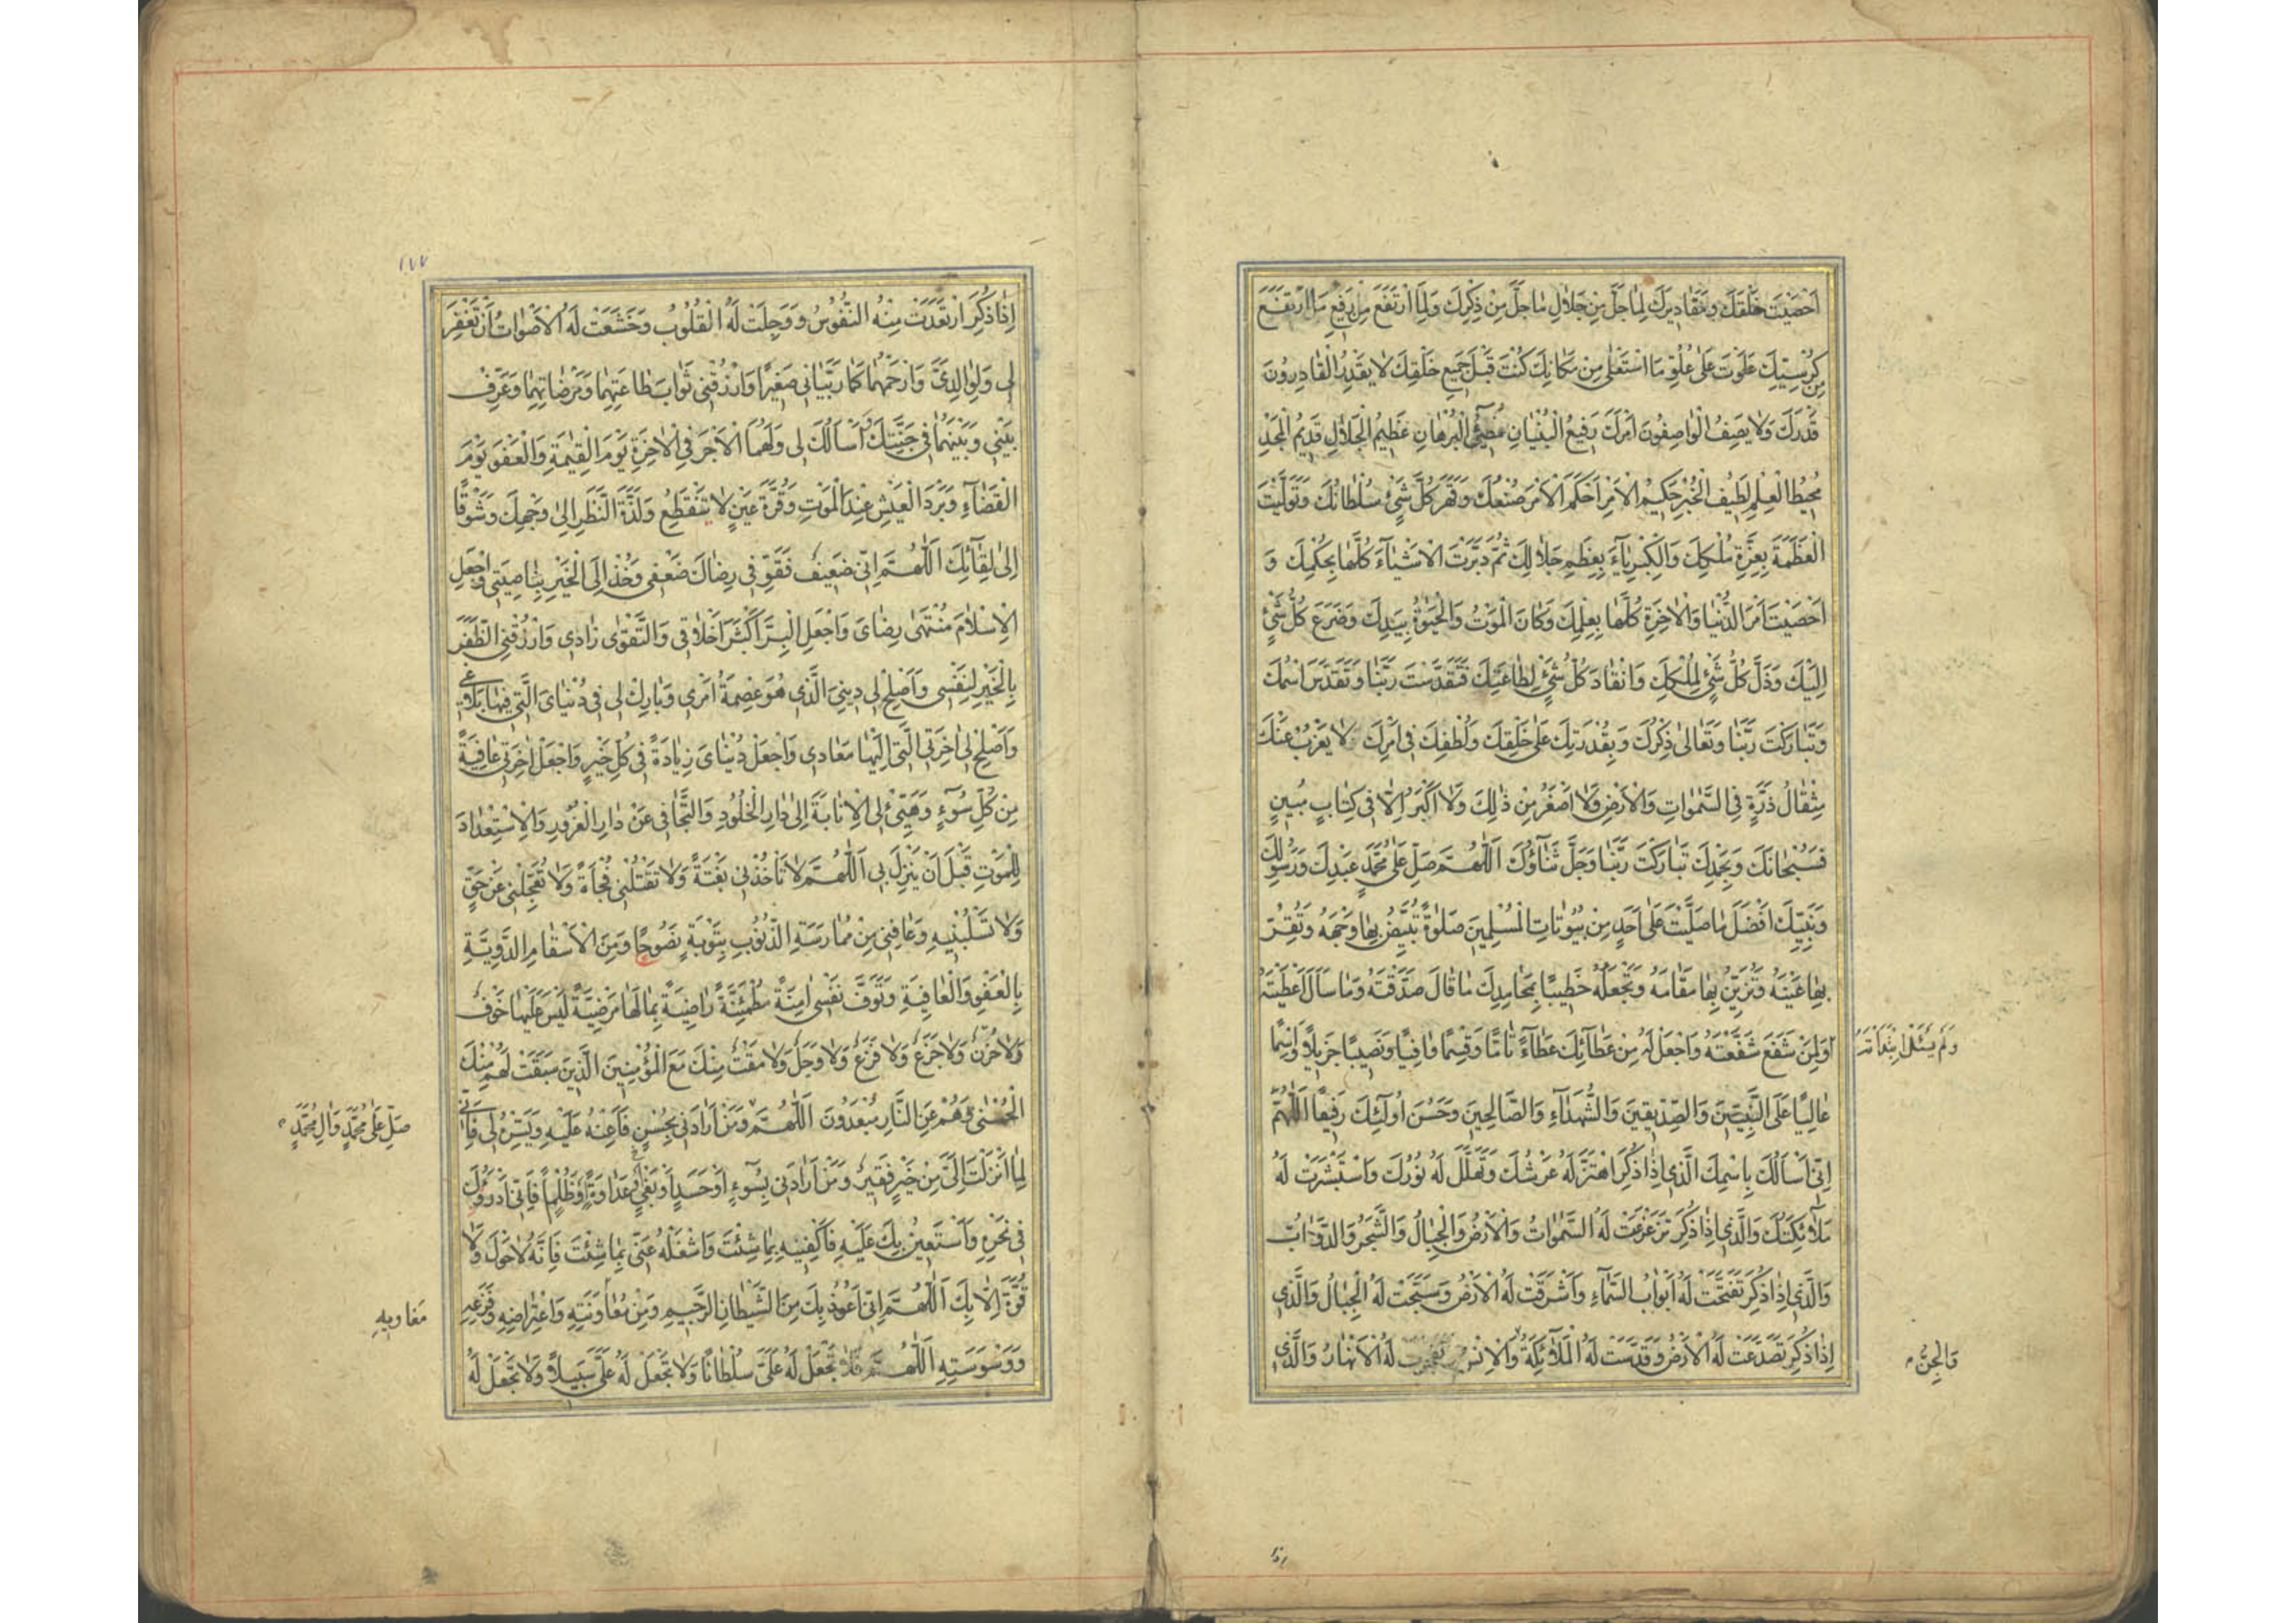 اَحْصَيْتَ خَلْقَكَ وَمَقَادِيرَكَ لِمَا جَلَّ مِنْ جَلَالِ مَا جَلَّ مِنْ ذِكْرِكَ وَلِمَا ارْتَفَعَ مِنْ رَفِيعِ مَا ارْتَفَعَ
مِنْ كُرْسِيِّكَ عَلَوْتَ عَلٰى عُلُوِّ مَا اسْتَعْلٰى مِنْ مَكَانِكَ كُنْتَ قَبْلَ جَمِيعِ خَلْقِكَ لَا يَقْدِرُ الْقَادِرُونَ
قَدْرَكَ وَلَا يَصِفُ الْوَاصِفُونَ اَمْرَكَ رَفِيعُ الْبُنْيَانِ مُضِيئُ الْبُرْهَانِ عَظِيمُ الْجَلَالِ قَدِيمُ الْمَجْدِ
مُحِيطُ الْعِلْمِ لَطِيفُ الْخُبْرِ حَكِيمُ الْاَمْرِ اَحْكَمَ الْاَمْرَ صُنْعُكَ وَقَهَرَ كُلَّ شَيْئٍ سُلْطَانُكَ وَتَوَلَّيْتَ
الْعَظَمَةَ بِعِزَّةِ مُلْكِكَ وَالْكِبْرِيَآءَ بِعِظَمِ جَلَالِكَ ثُمَّ دَبَّرْتَ الْاَشْيَآءَ كُلَّهَا بِحُكْمِكَ وَ
اَحْصَيْتَ اَمْرَ الدُّنْيَا وَالْاٰخِرَةِ كُلَّهَا بِعِلْمِكَ وَكَانَ الْمَوْتُ وَالْحَيٰوةُ بِيَدِكَ وَضَرَعَ كُلُّ شَيْئٍ
اِلَيْكَ وَذَلَّ كُلُّ شَيْئٍ لِمُلْكِكَ وَانْقَادَ كُلُّ شَيْئٍ لِطَاعَتِكَ فَتَقَدَّسْتَ رَبَّنَا وَتَقَدَّسَ اسْمُكَ
وَتَبَارَكْتَ رَبَّنَا وَتَعَالٰى ذِكْرُكَ وَبِقُدْرَتِكَ عَلٰى خَلْقِكَ وَلُطْفِكَ فِى اَمْرِكَ لَا يَعْزُبُ عَنْكَ
مِثْقَالُ ذَرَّةٍ فِى السَّمٰوَاتِ وَالْاَرْضِ وَلَا اَصْغَرُ مِنْ ذٰلِكَ وَلَا اَكْبَرُ اِلَّا فِى كِتَابٍ مُبِينٍ
فَسُبْحَانَكَ وَبِحَمْدِكَ تَبَارَكْتَ رَبَّنَا وَجَلَّ ثَنَاؤُكَ اَللّٰهُمَّ صَلِّ عَلٰى مُحَمَّدٍ عَبْدِكَ وَرَسُولِكَ
وَنَبِيِّكَ اَفْضَلَ مَا صَلَّيْتَ عَلٰى اَحَدٍ مِنْ بُيُوتَاتِ الْمُسْلِمِينَ صَلٰوةً تُبَيِّضُ بِهَا وَجْهَهُ وَتُقِرُّ
بِهَا عَيْنَهُ وَتُزَيِّنُ بِهَا مَقَامَهُ وَتَجْعَلُهُ خَطِيبًا بِمَحَامِدِكَ مَا قَالَ صَدَّقْتَهُ وَمَا سَاَلَ اَعْطَيْتَهُ
وَلِمَنْ شَفَعَ شَفَّعْتَهُ وَاجْعَلْ لَهُ مِنْ عَطَآئِكَ عَطَآءً تَامًّا وَقِسْمًا وَافِيًا وَنَصِيبًا جَزِيلًا وَاسْمًا
عَالِيًا عَلَى النَّبِيِّينَ وَالصِّدِّيقِينَ وَالشُّهَدَآءِ وَالصَّالِحِينَ وَحَسُنَ اُولٰئِكَ رَفِيقًا اَللّٰهُمَّ
اِنِّى اَسْاَلُكَ بِاسْمِكَ الَّذِى اِذَا ذُكِرَ اهْتَزَّ لَهُ عَرْشُكَ وَتَهَلَّلَ لَهُ نُورُكَ وَاسْتَبْشَرَتْ لَهُ
مَلٰٓائِكَتُكَ وَالَّذِى اِذَا ذُكِرَ تَزَعْزَعَتْ لَهُ السَّمٰوَاتُ وَالْاَرْضُ وَالْجِبَالُ وَالشَّجَرُ وَالدَّوَابُّ
وَالَّذِى اِذَا ذُكِرَ تَفَتَّحَتْ لَهُ اَبْوَابُ السَّمَآءِ وَاَشْرَقَتْ لَهُ الْاَرْضُ وَسَبَّحَتْ لَهُ الْجِبَالُ وَالَّذِى
اِذَا ذُكِرَ تَصَدَّعَتْ لَهُ الْاَرْضُ وَقَدَّسَتْ لَهُ الْمَلٰٓئِكَةُ وَالْاِنْسُ وَتَفَجَّرَتْ لَهُ الْاَنْهَارُ وَالَّذِى
وَالْجِنُّ
١٧٧
اِذَا ذُكِرَ ارْتَعَدَتْ مِنْهُ النُّفُوسُ وَوَجِلَتْ لَهُ الْقُلُوبُ وَخَشَعَتْ لَهُ الْاَصْوَاتُ اَنْ تَغْفِرَ
لِى وَلِوَالِدَىَّ وَارْحَمْهُمَا كَمَا رَبَّيَانِى صَغِيرًا وَارْزُقْنِى ثَوَابَ طَاعَتِهِمَا وَمَرْضَاتِهِمَا وَعَرِّفْ
بَيْنِى وَبَيْنَهُمَا فِى جَنَّتِكَ اَسْاَلُكَ لِى وَلَهُمَا الْاَجْرَ فِى الْاٰخِرَةِ يَوْمَ الْقِيٰمَةِ وَالْعَفْوَ يَوْمَ
الْقَضَآءِ وَبَرْدَ الْعَيْشِ عِنْدَ الْمَوْتِ وَقُرَّةَ عَيْنٍ لَا تَنْقَطِعُ وَلَذَّةَ النَّظَرِ اِلٰى وَجْهِكَ وَشَوْقًا
اِلٰى لِقَآئِكَ اَللّٰهُمَّ اِنِّى ضَعِيفٌ فَقَوِّ فِى رِضَاكَ ضَعْفِى وَخُذْ اِلَى الْخَيْرِ بِنَاصِيَتِى وَاجْعَلِ
الْاِسْلَامَ مُنْتَهٰى رِضَاىَ وَاجْعَلِ الْبِرَّ اَكْثَرَ اَخْلَاقِى وَالتَّقْوٰى زَادِى وَارْزُقْنِى الظَّفَرَ
بِالْخَيْرِ لِنَفْسِى وَاَصْلِحْ لِى دِينِىَ الَّذِى هُوَ عِصْمَةُ اَمْرِى وَبَارِكْ لِى فِى دُنْيَاىَ الَّتِى فِيهَا بَلَاغِى
وَاَصْلِحْ لِى اٰخِرَتِى الَّتِى اِلَيْهَا مَعَادِى وَاجْعَلْ دُنْيَاىَ زِيَادَةً فِى كُلِّ خَيْرٍ وَاجْعَلْ اٰخِرَتِى عَافِيَةً
مِنْ كُلِّ سُوٓءٍ وَهَيِّئْ لِى الْاِنَابَةَ اِلٰى دَارِ الْخُلُودِ وَالتَّجَافِى عَنْ دَارِ الْغُرُورِ وَالْاِسْتِعْدَادَ
لِلْمَوْتِ قَبْلَ اَنْ يَنْزِلَ بِى اَللّٰهُمَّ لَا تَاْخُذْنِى بَغْتَةً وَلَا تَقْتُلْنِى فُجْاَةً وَلَا تُعَجِّلْنِى عَنْ حَقٍّ
وَلَا تَسْلُبْنِيهِ وَعَافِنِى مِنْ مُمَارَسَةِ الذُّنُوبِ بِتَوْبَةٍ نَصُوحًا وَمِنَ الْاَسْقَامِ الدَّوِيَّةِ
بِالْعَفْوِ وَالْعَافِيَةِ وَتَوَفَّ نَفْسِى اٰمِنَةً مُطْمَئِنَّةً رَاضِيَةً بِمَا لَهَا مَرْضِيَّةً لَيْسَ عَلَيْهَا خَوْفٌ
وَلَا حُزْنٌ وَلَا جَزَعٌ وَلَا فَزَعٌ وَلَا وَجَلٌ وَلَا مَقْتٌ مِنْكَ مَعَ الْمُؤْمِنِينَ الَّذِينَ سَبَقَتْ لَهُمْ مِنْكَ
الْحُسْنٰى وَهُمْ عَنِ النَّارِ مُبْعَدُونَ اَللّٰهُمَّ وَمَنْ اَرَادَنِى بِحُسْنٍ فَاَعِنْهُ عَلَيْهِ وَيَسِّرْهُ لِى فَاِنِّى
صَلِّ عَلٰى مُحَمَّدٍ وَاٰلِ مُحَمَّدٍ
لِمَا اَنْزَلْتَ اِلَىَّ مِنْ خَيْرٍ فَقِيرٌ وَمَنْ اَرَادَنِى بِسُوٓءٍ اَوْ حَسَدٍ اَوْ بَغْىٍ عَدَاوَةً وَظُلْمًا فَاِنِّى اَدْرَؤُكَ
فِى نَحْرِهِ وَاَسْتَعِينُ بِكَ عَلَيْهِ فَاكْفِنِيهِ بِمَا شِئْتَ وَاشْغَلْهُ عَنِّى بِمَا شِئْتَ فَاِنَّهُ لَا حَوْلَ وَلَا
قُوَّةَ اِلَّا بِكَ اَللّٰهُمَّ اِنِّى اَعُوذُ بِكَ مِنَ الشَّيْطَانِ الرَّجِيمِ وَمِنْ مُعَاوَنَتِهِ وَاعْتِرَاضِهِ وَفَزَعِهِ
مَغَاوِيهِ
وَوَسْوَسَتِهِ اَللّٰهُمَّ فَلَا تَجْعَلْ لَهُ عَلَىَّ سُلْطَانًا وَلَا تَجْعَلْ لَهُ عَلَىَّ سَبِيلًا وَلَا تَجْعَلْ لَهُ